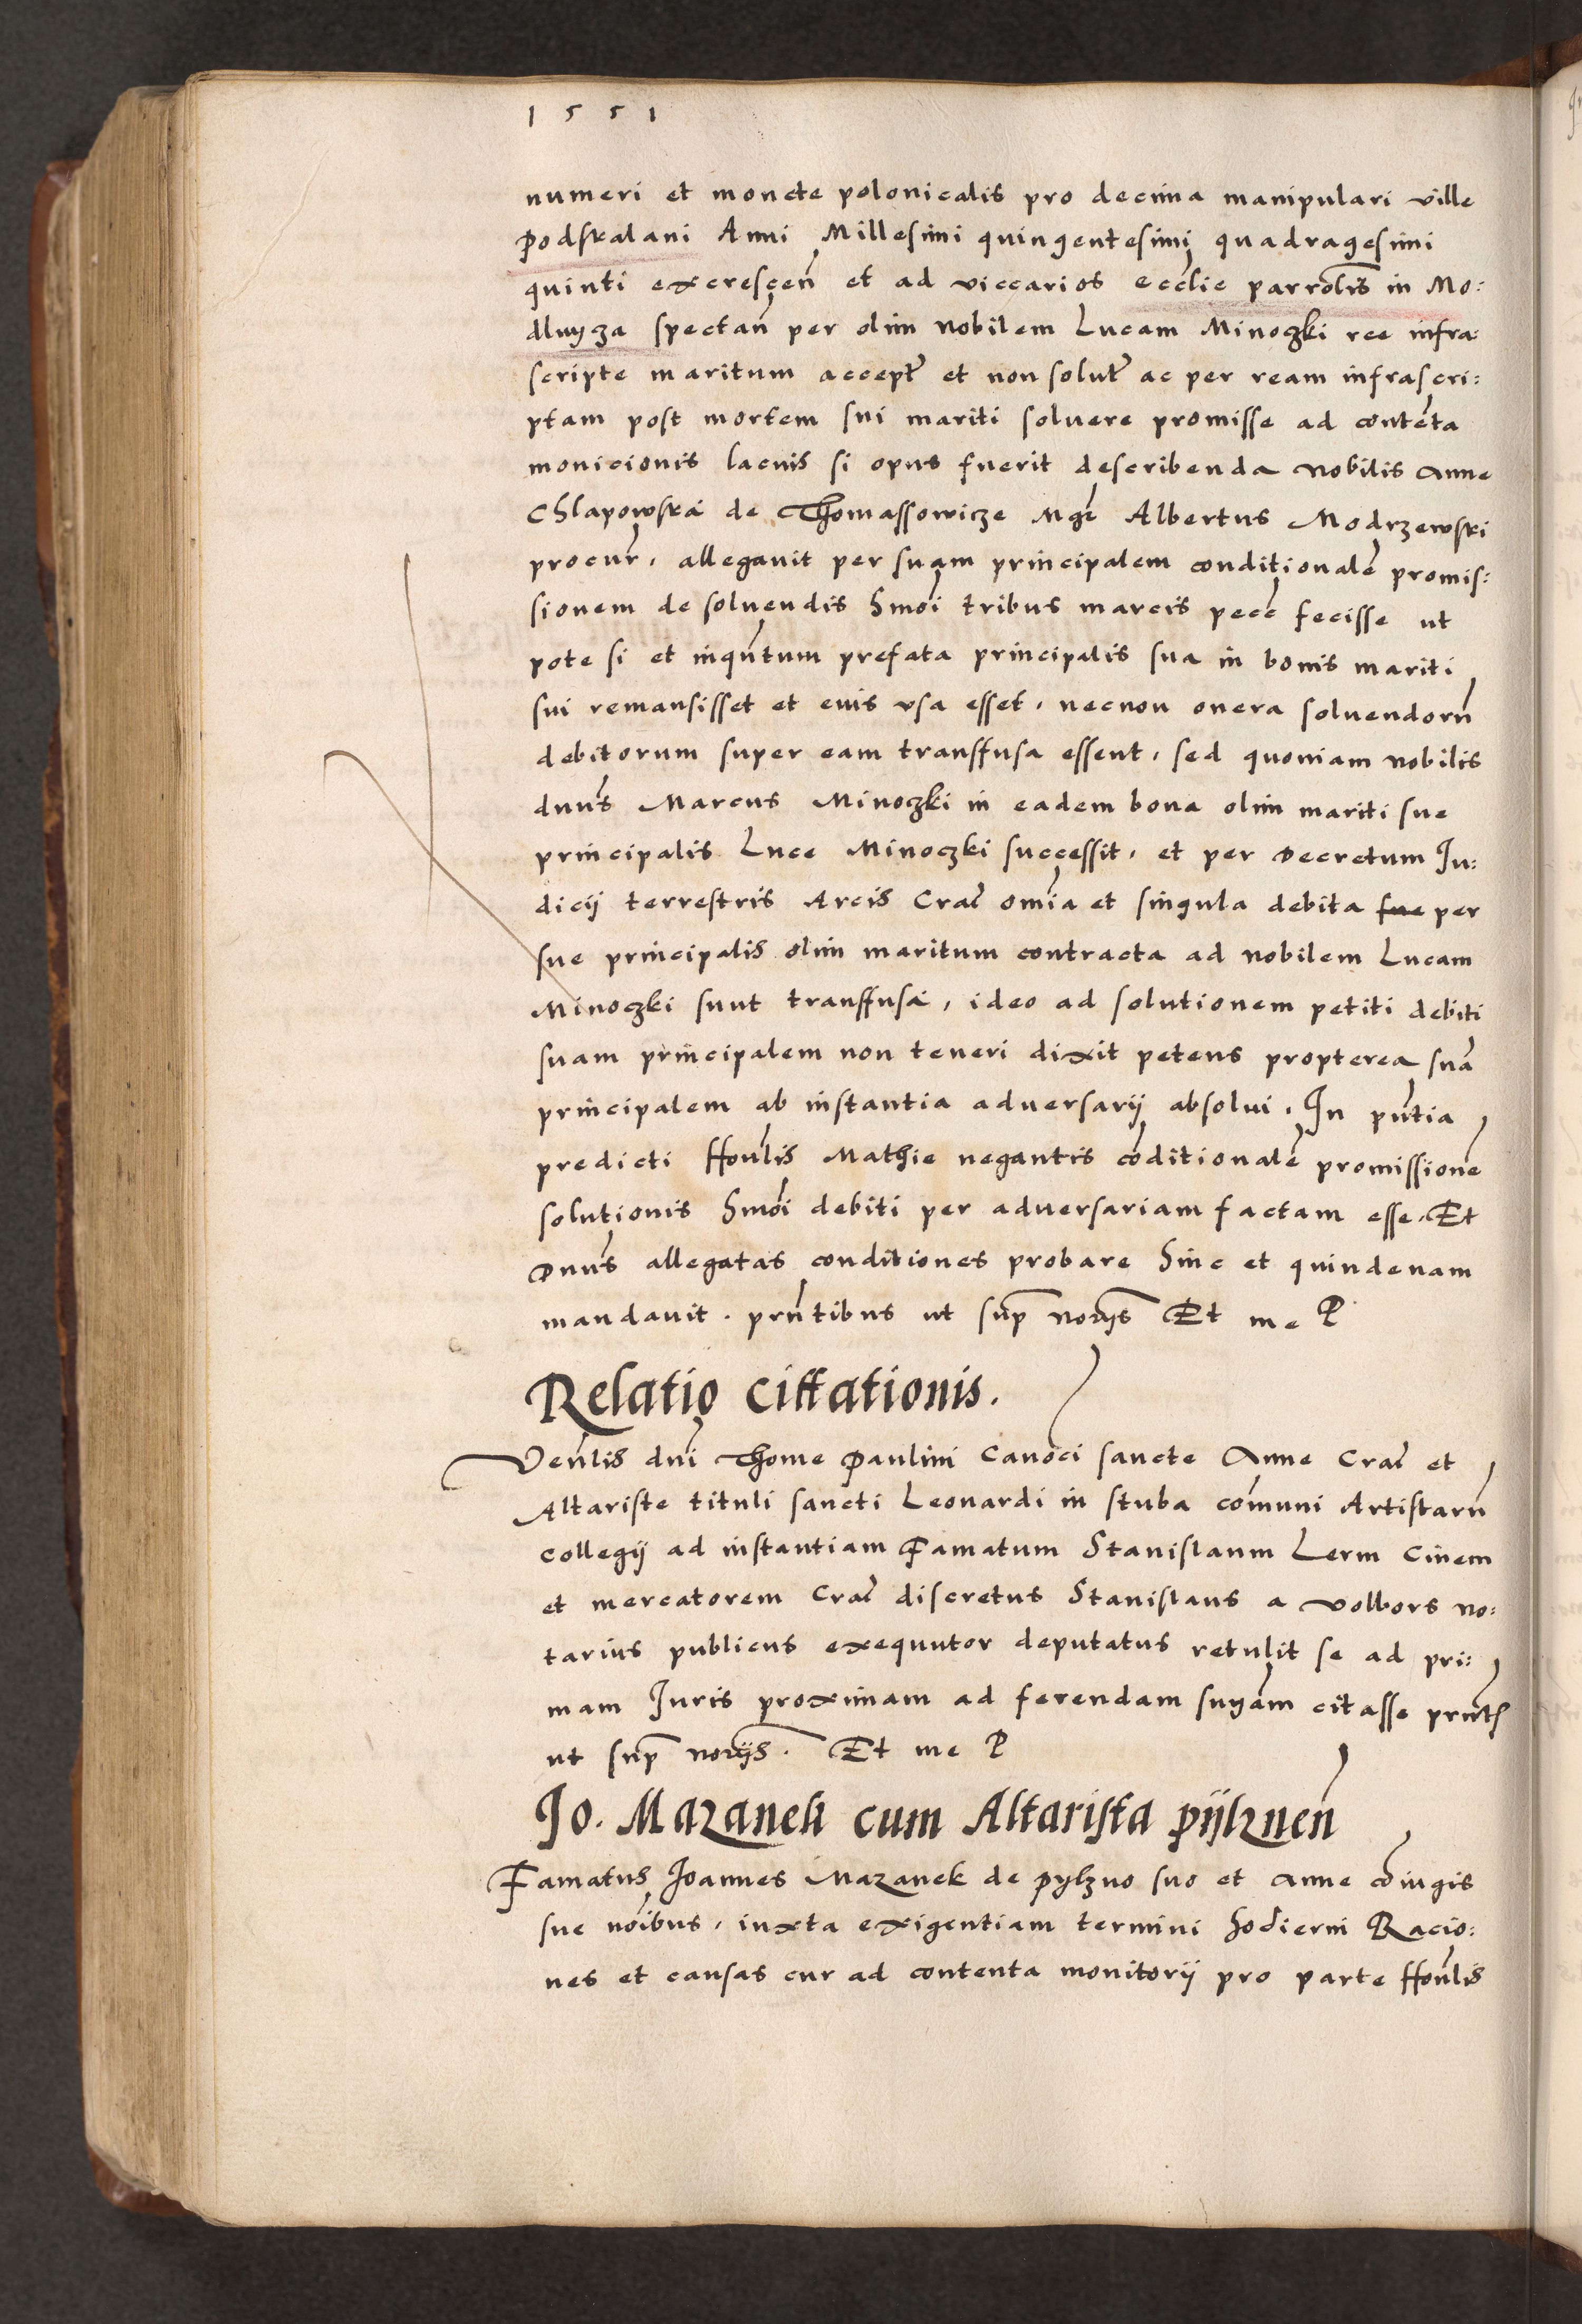 1551
numeri et monete polonicalis pro decima manipulari ville
Podskalani Anni Millesimi quingentesimi quadragesimi
quinti excrescen̄ et ad viccarios ecclīe parrolīs in Mo:
dlnycza spectan̄ per olim nobilem Lucam Minoczki ree infra:
scripte maritum accept̄ et non solut̄ ac per ream infrascri:
ptam post mortem sui mariti soluere promisse ad contēta
monicionis lacius si opus fuerit describenda nobilis Anne
Chlapowska de Thomassowicze Mgr̄ Albertus Modrzewski
procur̄. allegauit per suam principalem conditionalē promis:
sionem de soluendis hmōi tribus marcis pecc̄ fecisse ut
pote si et inqn̄tum prefata principalis sua in bonis mariti
sui remansisset et eius vsa esset, necnon onera soluendorū
debitorum super eam transfusa essent, sed quoniam nobilis
dnūs Marcus Minoczki in eadem bona olim mariti sue
principalis Luce Minoczki successit, et per Decretum Iu:
dicij terrestris Arcis Crac̄ om̄ia et singula debita sue per
sue principalis olim maritum contracta ad nobilem Lucam
Minoczki sunt transfusa, ideo ad solutionem petiti debiti
suam principalem non teneri dixit petens propterea suā
principalem ab instantia aduersarij absolui. In pn̄tia
predicti Honl̄is Mathie negantis cōditionalē promissionē
solutionis hmōi debiti per aduersariam factam esse. Et
Dnūs allegatas conditiones probare hinc et quindenam
mandauit. prn̄tibus ut sup̄ norijs Et me P
Relatio cittationis.
Venl̄is dnī Thome Paulini Canoc̄i sancte Anne Crac̄ et
Altariste tituli sancti Leonardi in stuba com̄uni Artistarū
collegij ad instantiam Famatum Stanislaum Lerm Ciuem
et mercatorem Crac̄ discretus Stanislaus a Volbors no:
tarius publicus exequutor deputatus retulit se ad pri:
mam Iuris proximam ad ferendam snyām citasse prn̄t
ut sup̄ norijs. Et me P
Jo. Mazanek cum Altarista pijlznen̄
Famatus Joannes Mazanek de pylzno suo et Anne cōiugis
sue noībus, iuxta exigentiam termini hodierni Racio:
nes et causas cur ad contenta monitorij pro parte Honl̄is